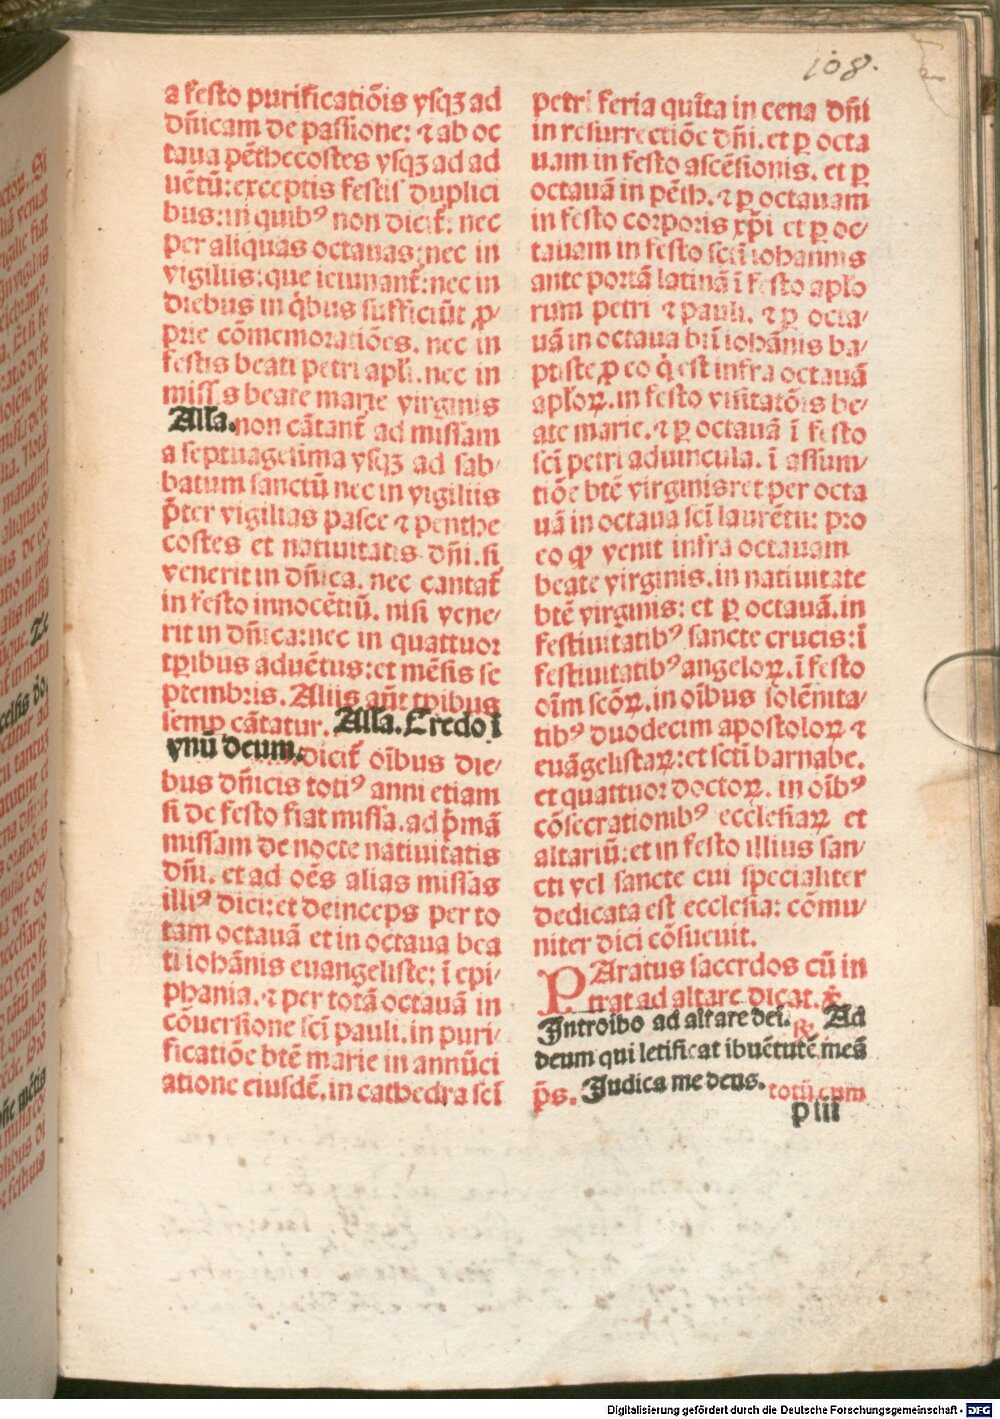 108.
a festo purificatiōis vsqꝫ ad
dn̄icam de passione: ⁊ ab oc
taua pēthecostes vsqꝫ ad ad
uētū: exceptis festis duplici
bus: in quibꝰ non dicit̄: nec
per aliquas octauas: nec in
vigiliis: que ieiunant̄: nec in
diebus in q̇bus sufficiūt ꝓ/
prie cōmemoratiōes. nec in
festis beati petri apl̄i. nec in
missis beate marie virginis
Alla. non cātant̄ ad missam
a septuagesima vsqꝫ ad sab/
batum sanctū nec in vigiliis
p̄ter vigilias pasce ⁊ penthe
costes et natiuitatis dn̄i. si
venerit in dn̄ica. nec cantat̄
in festo innocētiū. nisi vene/
rit in dn̄ica: nec in quattuor
tp̄ibus aduētus: et mēsis se
ptembris. Aliis aūt tp̄ibus
semꝑ cātatur. Alla. Credo ī
vnū deum. dicit̄ oībus die/
bus dn̄icis totiꝰ anni etiam
si de festo fiat missa. ad p̄mā
missam de nocte natiuitatis
dn̄i. et ad oēs alias missas
illiꝰ diei: et deinceps per to
tam octauā et in octaua bea
ti iohānis euangeliste: ī epi/
phania. ⁊ per totā octauā in
cōuersione scī pauli. in puri/
ficatiōe btē marie in annūci
atione eiusdē. in cathedra scī
petri feria quīta in cena dn̄i
in resurrectiōe dn̄i. et ꝑ octa
uam in festo ascēsionis. et ꝑ
octauā in pēth. ⁊ ꝑ octauam
in festo corporis xp̄i et ꝑ oc/
tauam in festo scti iohannis
ante portā latinā ī festo apl̄o
rum petri ⁊ pauli. ⁊ ꝑ octa/
uā in octaua bti iohānis ba/
ptiste ꝓ eo q̇ est infra octauā
apl̄oꝝ. in festo visitatōis be/
ate marie. ⁊ ꝑ octauā ī festo
scī petri aduincula. ī assum/
tiōe btē virginis: et per octa
uā in octaua scī laurētii: pro
eo ꝙ venit infra octauam
beate virginis. in natiuitate
btē virginis: et ꝑ octauā. in
festiuitatibꝰ sancte crucis: ī
festiuitatibꝰ angeloꝝ. ī festo
oīm scōꝝ. in oībus solēnita/
tibꝰ duodecim apostoloꝝ ⁊
euāgelistaꝝ: et scti barnabe.
et quattuor doctoꝝ. in oībꝰ
cōsecrationibꝰ ecclesiaꝝ et
altariū: et in festo illius san/
cti vel sancte cui specialiter
dedicata est ecclesia: cōmu/
niter dici cōsueuit.
PAratus sacerdos cū in
trat ad altare dicat. ℣
Introibo ad altare dei. ℟ Ad
deum qui letificat ibuētutē meā
p̄s. Iudica me deus. totū cum
p iii
Digitalisierung gefördert durch die Deutsche Forschungsgemeinschaft - DFG